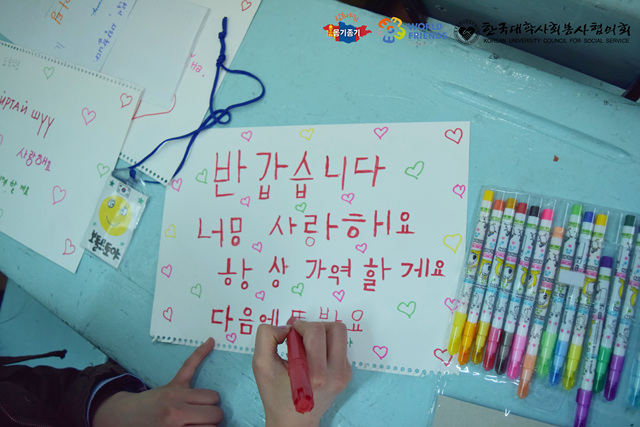 WORLD FRIENDS
한국대학사회봉사협의회
KOREAN UNIVERSITY COUNCIL FOR SOCIAL SERVICE
йртай шүү
사랑해요
반갑습니다
사랑해요
항상 가역할게요
다음에 또 봐요